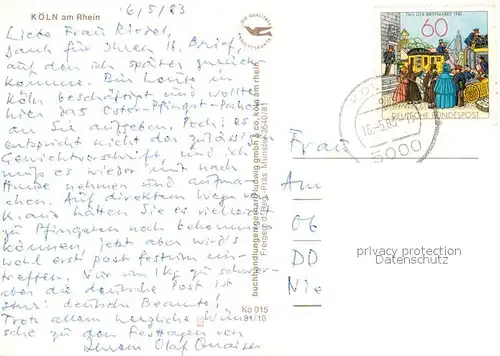 KÖLN am Rhein
16/5/83
Liebe Frau Riedel,
Dank für Ihren 16. Brief,
auf den ich später zurück
komme. Bin heute in
Köln beschäftigt und wollte
hier das Oster-Pfingst-Paket
an Sie aufgeben. Pech: es
entspricht nicht der zulässigen
Gewichtsvorschrift, und ich
muß es wieder mit nach
Hause nehmen und aufma-
chen. Auf direktem Wege von
hätten Sie es vielleicht
zu Pfingsten noch bekommen
können, jetzt aber wird's
wohl erst post festum ein-
treffen. Nur um 1kg zu schwer
aber die deutsche Post ist
stur: deutsche Beamte!
Trotz allem herzliche Wün-
sche zu den Festtagen von
Ihrem Olaf
DIE QUALITÄTS
ANSICHTSKARTE
buchhandlung gerhard ludwig gmbh & co, köln am rhein
Freigeg. d. Reg. Präs. Münster
Kö 915
81/10
TAG DER BRIEFMARKE 1981
60
DEUTSCHE BUNDESPOST
5000
Frau
Am
Ob
DD
Nie
privacy protection
Datenschutz